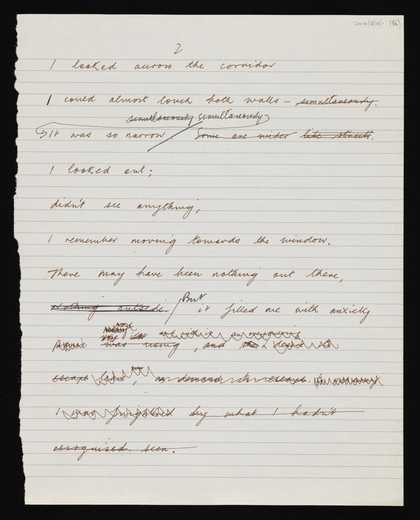 2
I looked across the corridor
I could almost touch both walls – simultaneously.
simultaneously simultaneously
It was so narrow / Some are wider like streets.
I looked out;
didn't see anything;
I remember moving towards the window.
There may have been nothing out there,
Nothing outside. / But it filled me with anxiety
was rising, and
escape
I was frightened by what I hadn't
recognised seen.